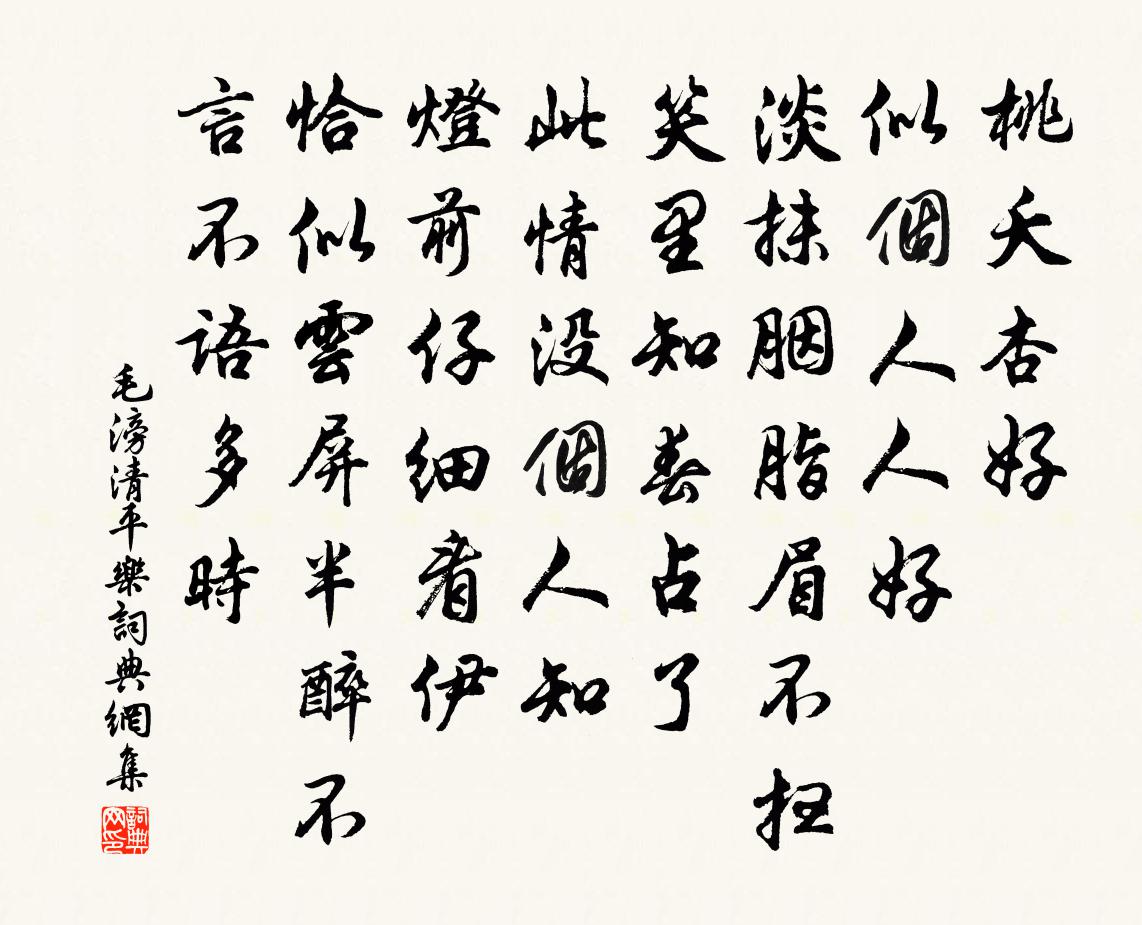 桃夭杏好
似個人人好
淡抹胭脂眉不扫
笑里知春占了
此情没個人知
燈前仔细看伊
恰似雲屏半醉不
言不語多時
毛滂清平樂詞典網集
詞典网印